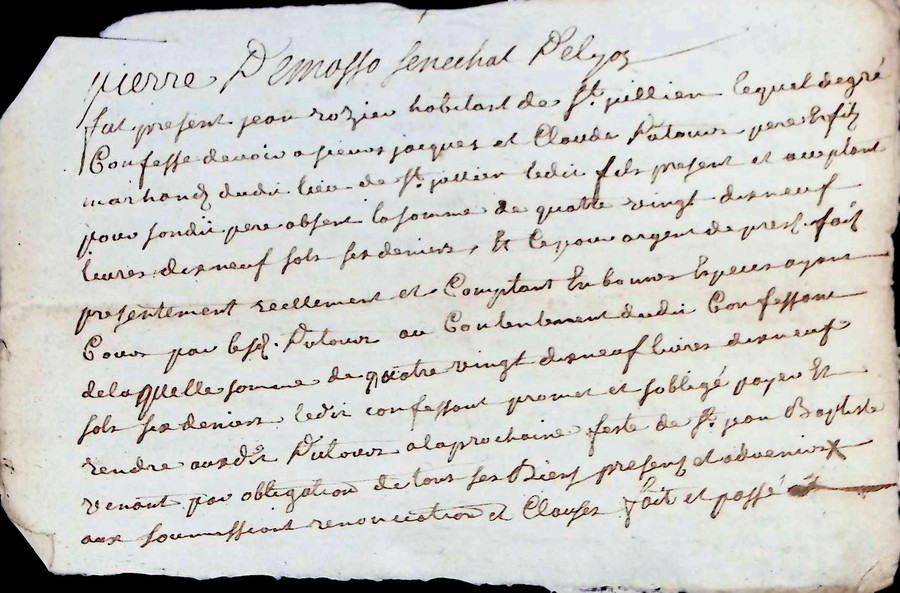 pierre Demosso senechal Delyon
fut present jean rozier habitant de St. jullien lequel degré
Confesse devoir a sieurs jacques et Claude Dutour pere Et fils
marchands dudit lieu de St. jullien ledit fils present et acceptant
pour sondit pere absent la somme de quatre vingt dixneuf
livres dixneuf sols six deniers, Et Ce pour argent de prest fait
presentement reellement et Comptant En bonnes Especes ayant
Cours par lesd. Dutour au Contentement dudit Confessant
delaquelle somme de quatre vingt dixneuf livres dixneuf
sols six deniers ledit confessant promet et soblige payer Et
rendre auxdits Dutour alaprochaine feste de St. jean Baptiste
venant par obligation de tous ses Biens presens et advenir
aux soumissions renonciation et Clauses fait et passé